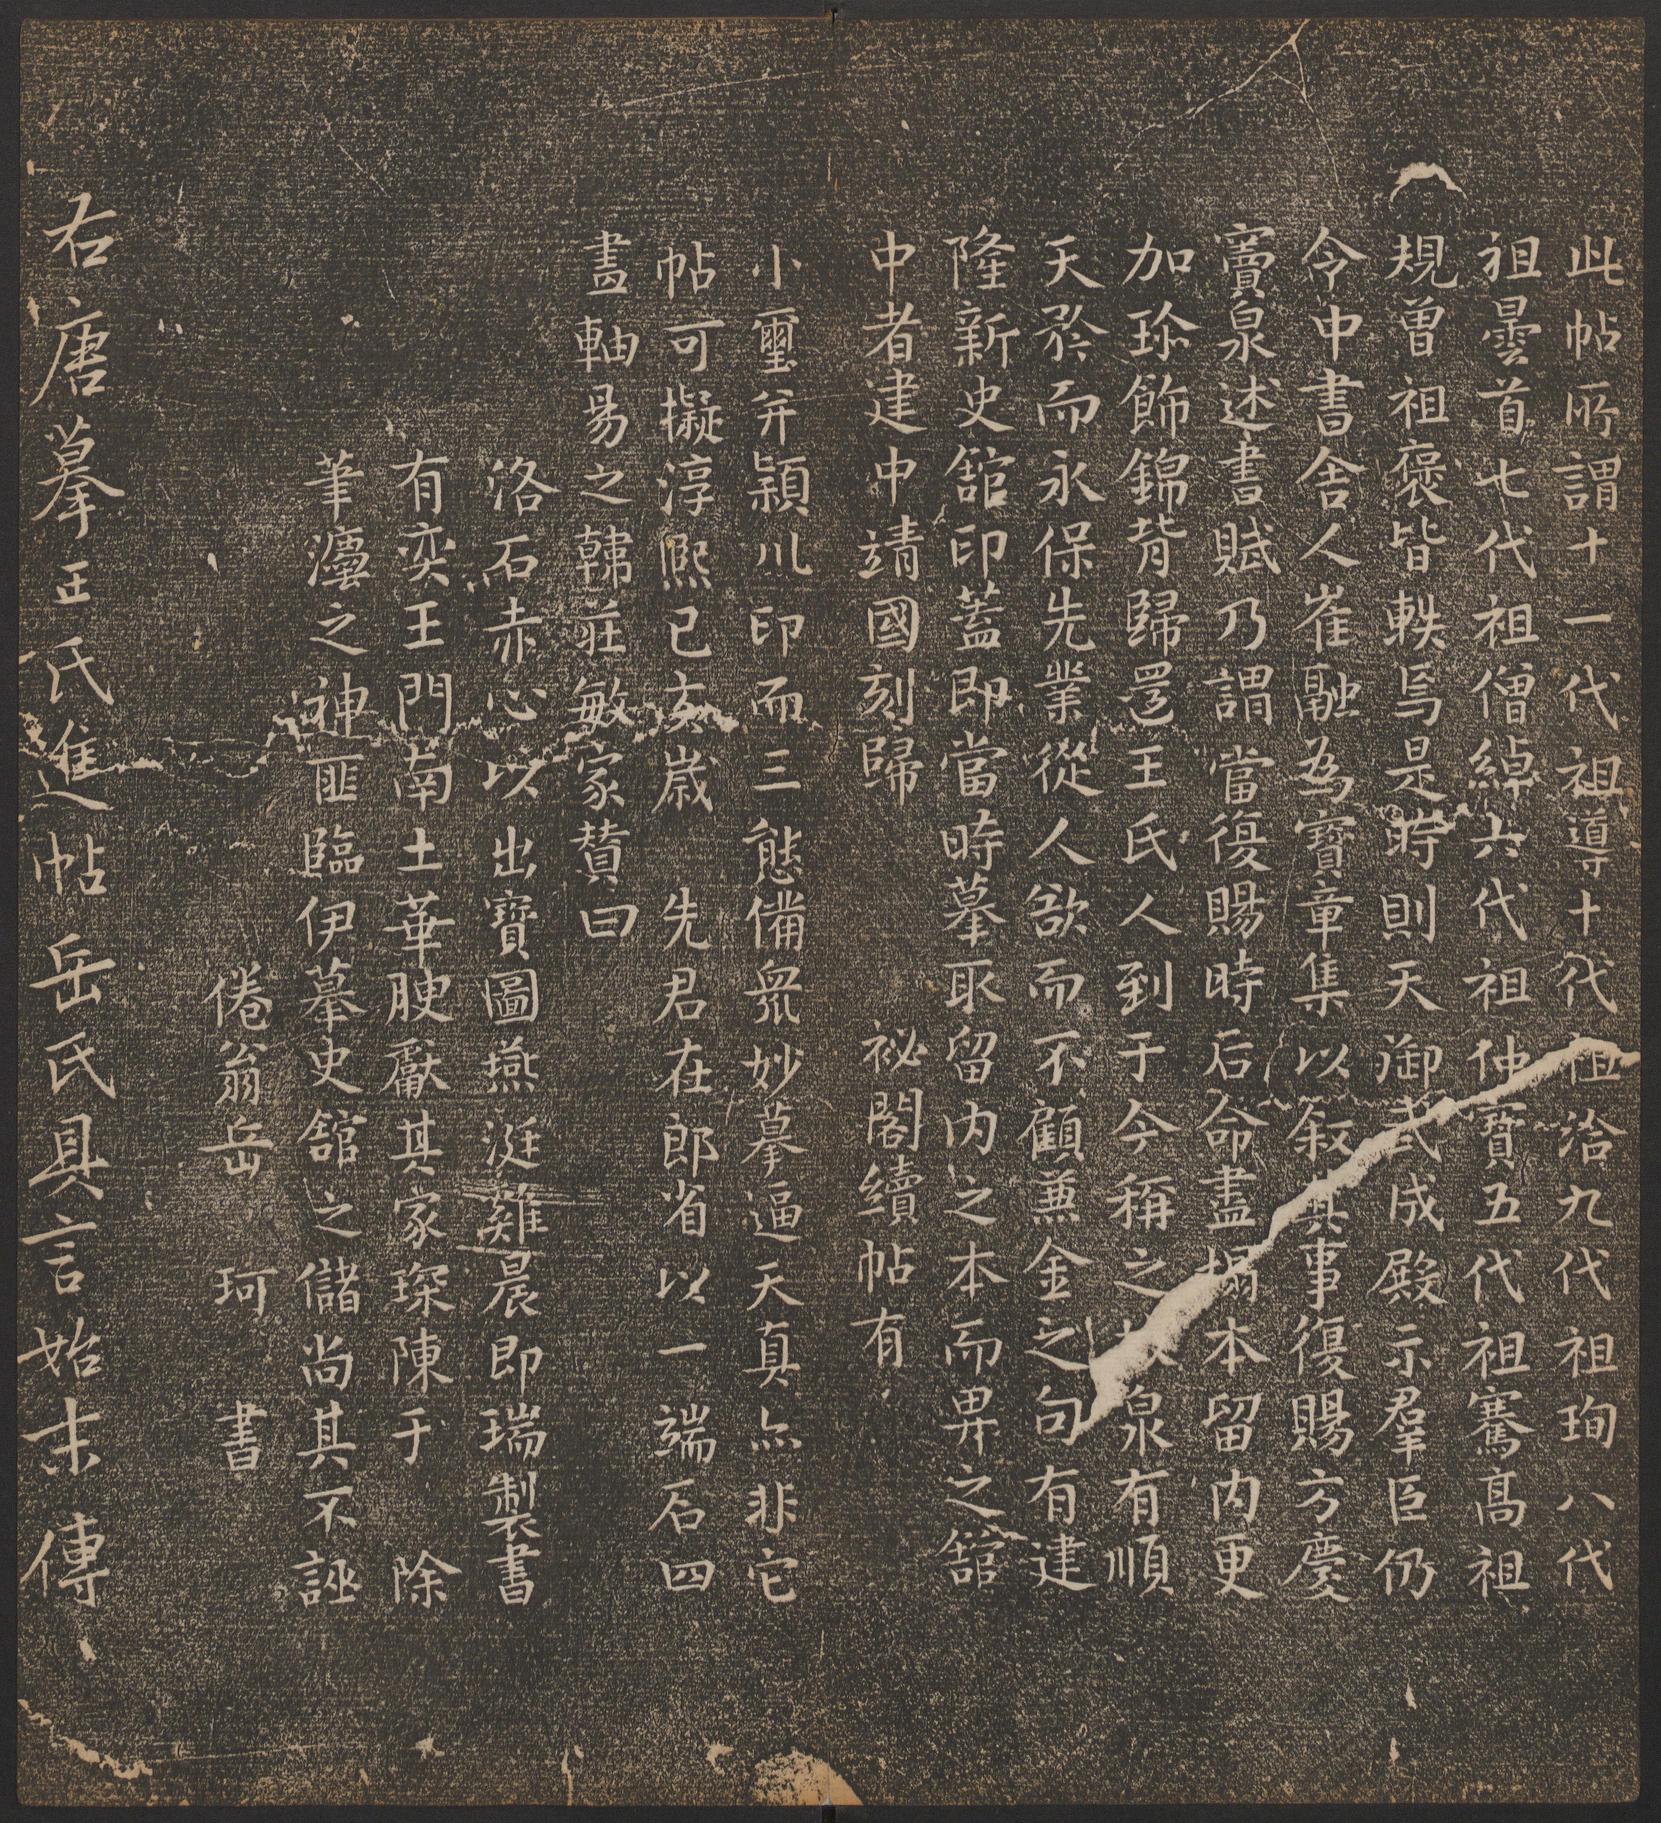 此帖所謂十一代祖導十代祖洽九代祖珣八代
祖曇首七代祖僧綽六代祖仲寶五代祖騫高祖
規曾祖褒皆軼焉是時則天御武成殿示羣臣仍
令中書舍人崔融為寶章集以叙其事復賜方慶
竇泉述書賦乃謂當復賜時后命盡榻本留內更
加珎飾錦背歸還王氏人到于今稱之泉有順
天矜而永保先業從人欲而不顧兼金之句有建
隆新史舘印葢即當時摹取留內之本而畀之舘
中者建中靖國刻歸 祕閣續帖有
小璽并潁川印而三態備眾妙摹逼天真亦非它
帖可擬淳熙已亥歲 先君在郎省以一端石四
畫軸易之韓莊敏家贊曰
洛石赤心以出寶圖燕涎雞晨即瑞製書
有奕王門南土華腴獻其家琛陳于 除
筆瀍之神匪臨伊摹史舘之儲尚其不誣
倦翁岳 珂 書
右唐摹王氏進帖岳氏具言始末傳